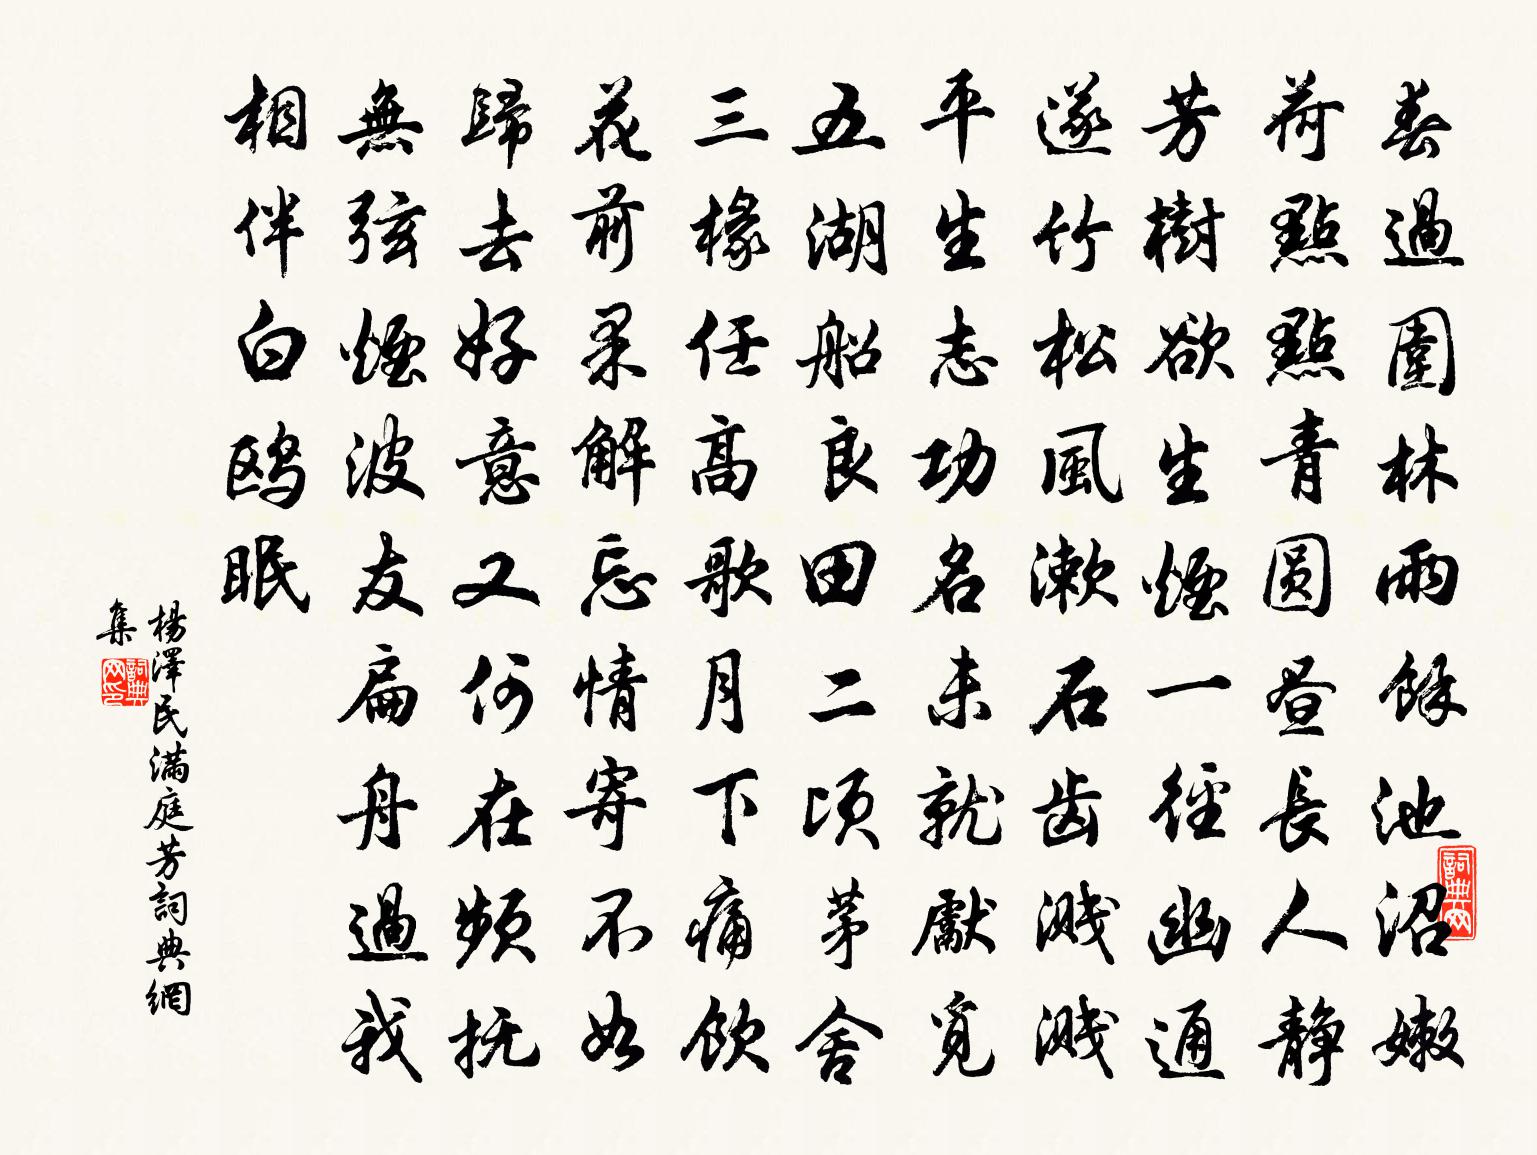 春過園林雨餘池沼嫩
荷點點青圓晝長人靜
芳樹欲生煙一徑幽通
邃竹松風漱石齒濺濺
平生志功名未就獻覓
五湖船良田二頃茅舍
三椽任高歌月下痛飲
花前果解忘情寄不如
歸去好意又何在頻抚
無弦煙波友扁舟過我
相伴白鸥眠
楊澤民滿庭芳詞典網
集
詞典网
詞典网印